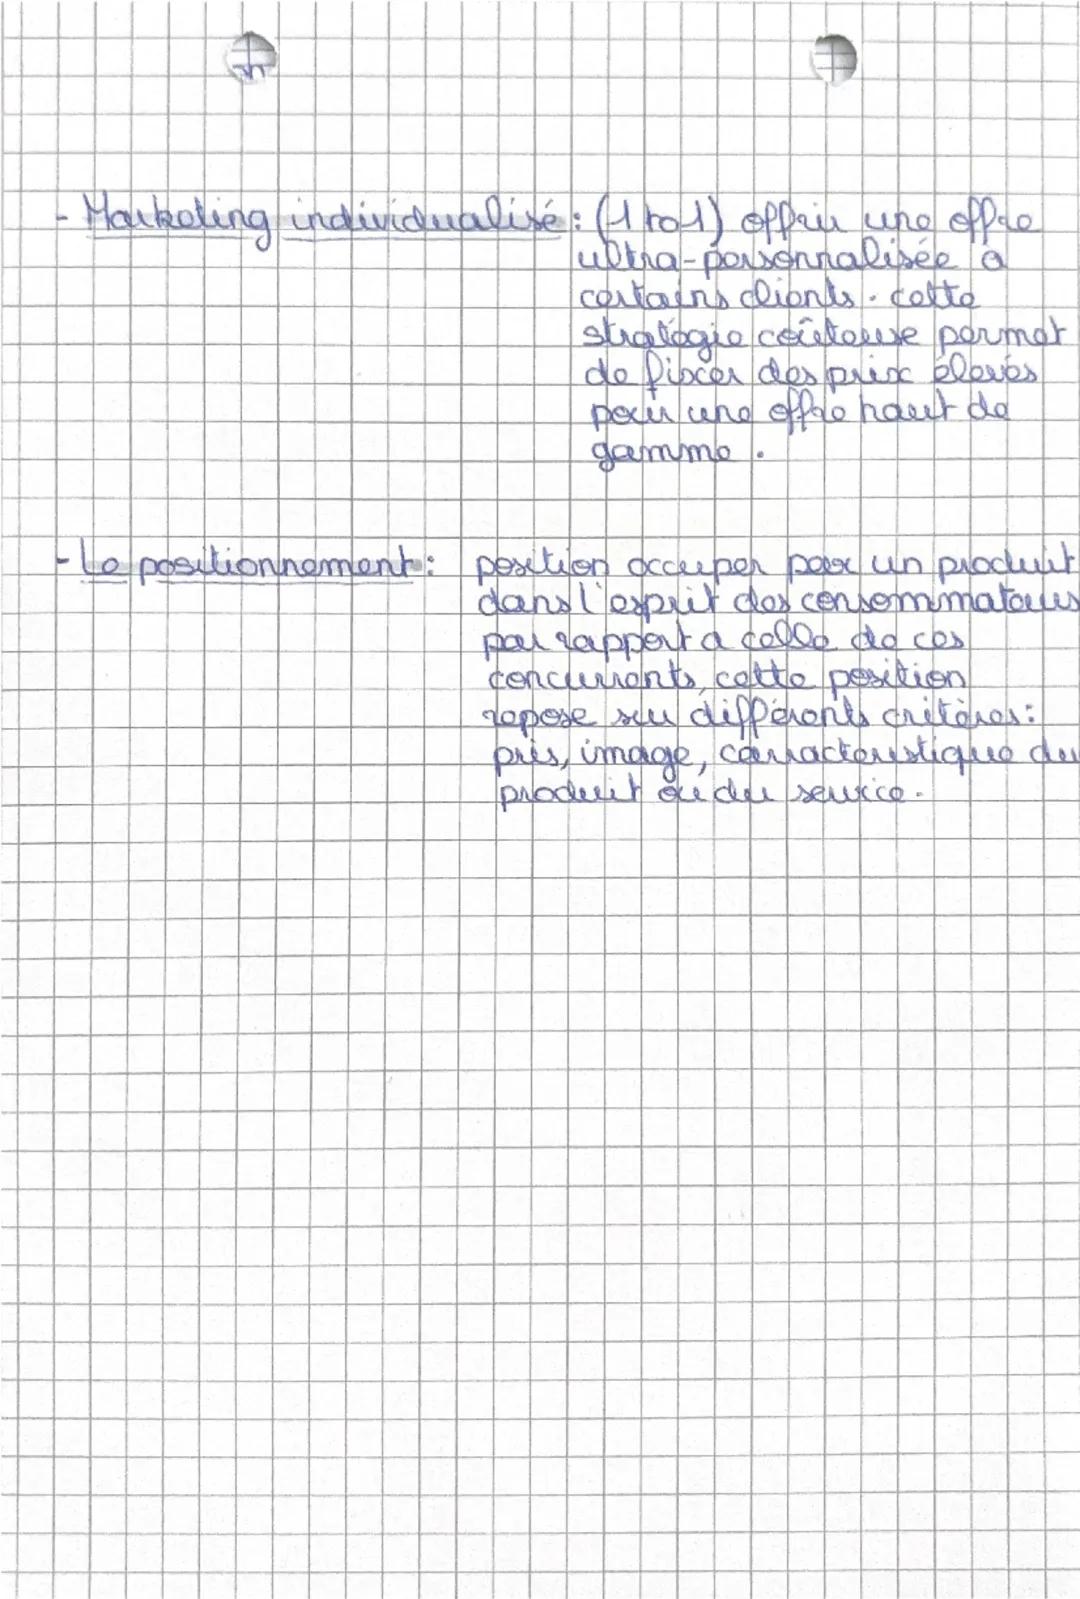 - Marketing individualisé : (1 to 1) offrir une offre
ultra-personnalisée a
certains clients. cette
stratégie coûteuse permet
de fixer des prix élevés
pour une offre haut de
gamme.
- Le positionnement : position occuper par un produit
dans l'esprit des consommateurs
par rapport a celle de ces
concurrents, cette position
repose sur différents critères :
prix, image, carractéristique du
produit ou du service.